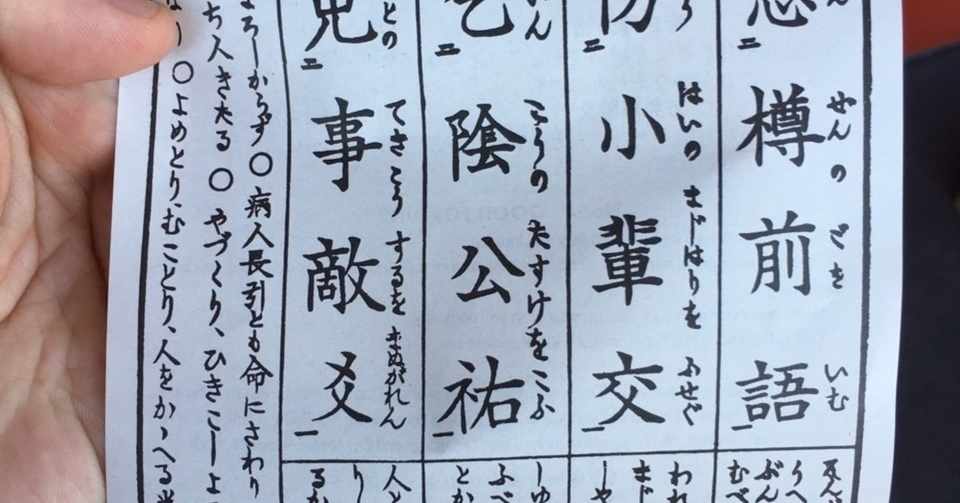 樽前語
ぜんの ごを いむ
小輩交
はいの まじはりを ふせぐ
乞陰公祐
こうの たすけを こふ
免事敵爻
との てきこう するを まぬがれん
ろしからず〇病人長引とも命にさわり
ち人きたる〇やづくり、ひきこしよ
〇よめとり、むことり、人をかゝへる
われ
まじ
ふべ
とか